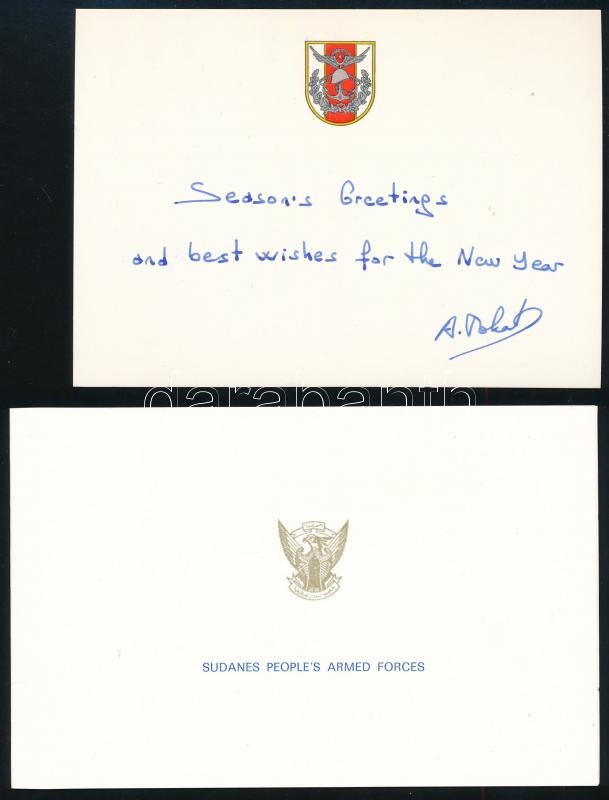 Season's Greetings
and best wishes for the New Year
darabanth
SUDANES PEOPLE'S ARMED FORCES